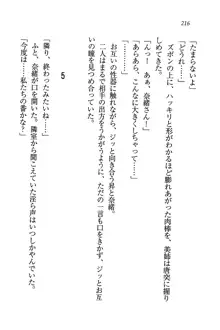 216
「たまらないよ」
「どうれ……」
ズボンの上に、ハッキリと形がわかるほど膨れあがった肉棒を、美師は唐突に握り
「んっー！　あぁ、奈緒さん！」
「あらあら、こんなに大きくしちゃって……」
お互いの性器に触れながら、ジッと向き合う昇と奈緒。
二人がまるで相手の出方をうかがうように、ただの一言も口をきかず、ジッとお互
いの瞳を見つめ合っていた。
5
「隣り、終わったみたいね……」
ふと、奈緒が口を開いた。隣室から聞こえていた淫ら声はいつしかやんでいた。
「今度は……私たちの番かな？」